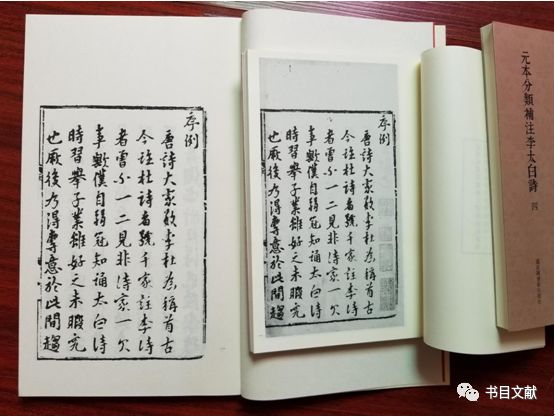 元本分類補注李太白詩 四
國家圖書館出版社
序例
唐詩大家數李杜爲稱首古
今註杜詩者號千家註李詩
者曾不一二見非詩家一欠
事歟僕自弱冠知誦太白詩
時習舉子業雖好之未暇究
也厥後乃得專意於此間趨
序例
唐詩大家數李杜爲稱首古
今註杜詩者號千家註李詩
者曾不一二見非詩家一欠
事歟僕自弱冠知誦太白詩
時習舉子業雖好之未暇究
也厥後乃得專意於此間趨
书目文献